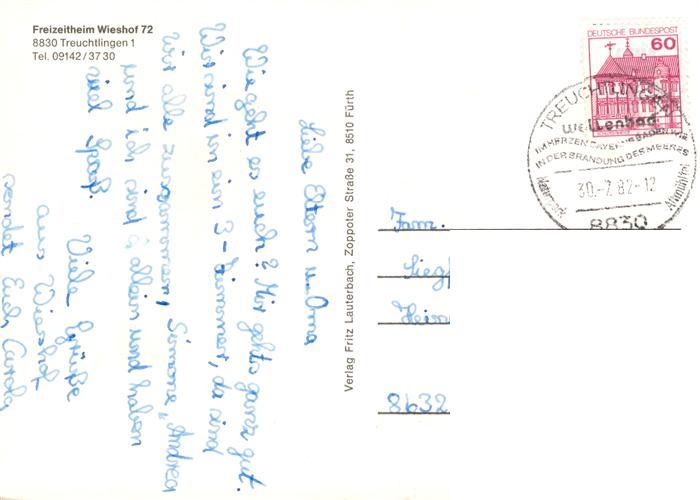 Freizeitheim Wieshof 72
8830 Treuchtlingen 1
Tel. 09142/37 30
Liebe Eltern u. Oma
Wie geht es euch? Mir geht's ganz gut.
Wir sind in ein 3-Zimmer, da sind
wir alle zusammen, Simone, Andrea
und ich sind allein und haben
viel Spaß.
Viele Grüße
aus Wieshof
sendet Euch Carola
Verlag Fritz Lauterbach, Zoppoter Straße 31, 8510 Fürth
DEUTSCHE BUNDESPOST
60
TREUCHTLINGEN
Wellenbad
IM HERZEN BAYERNS BADEN WIE
IN DER BRANDUNG DES MEERES
Naturpark Altmühltal
30.-7.82-12
8830
Fam.
Siegf
Heim
8632